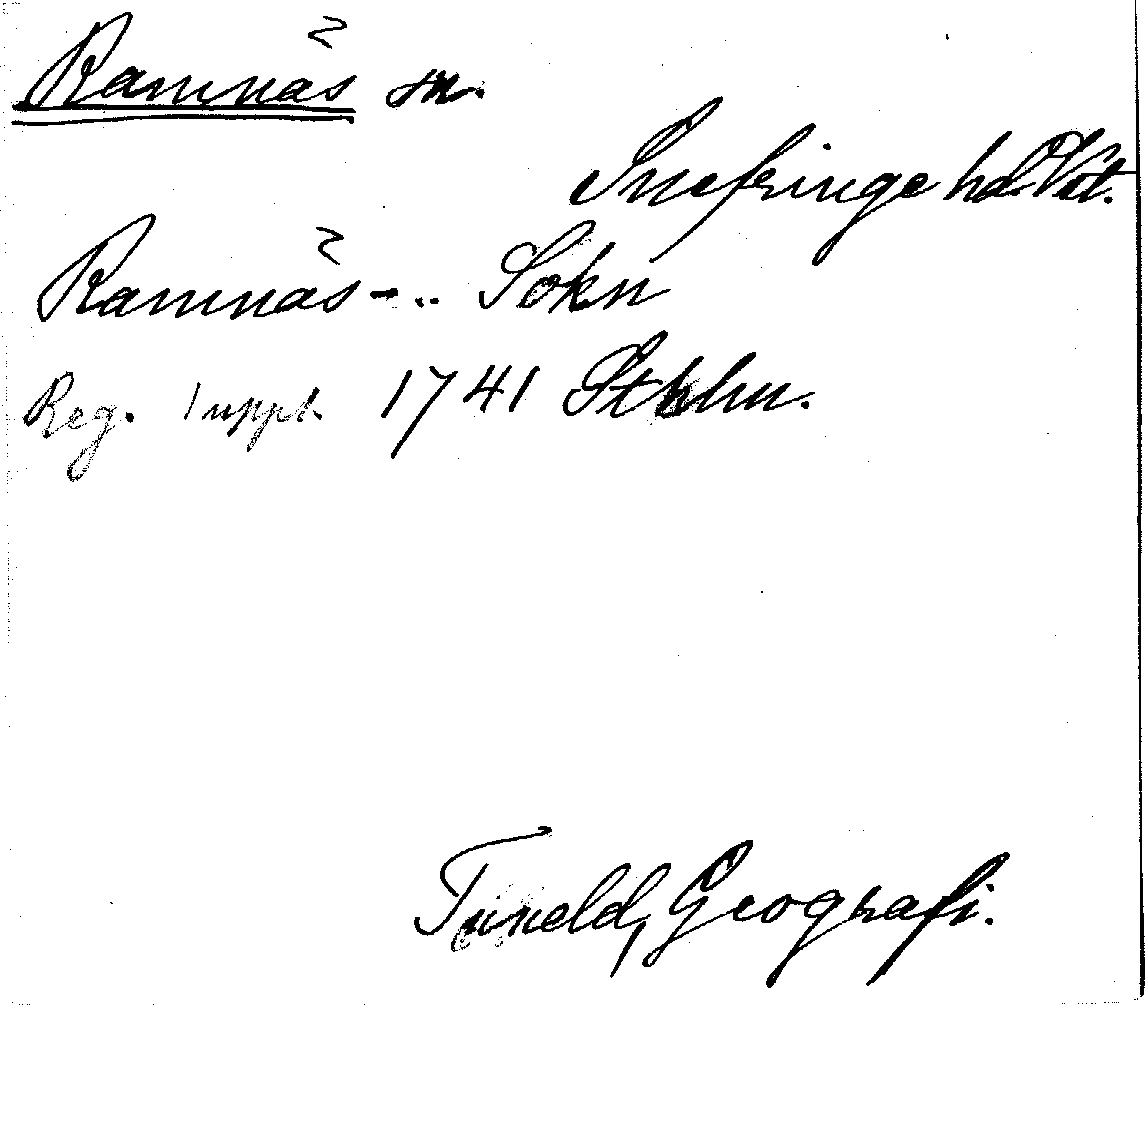 Ramnäs sn.
Snefringe hd. Vstm.
Ramnäs-.. Sokn
Reg. 1 uppl. 1741 Sthlm.
Tuneld, Geografi.